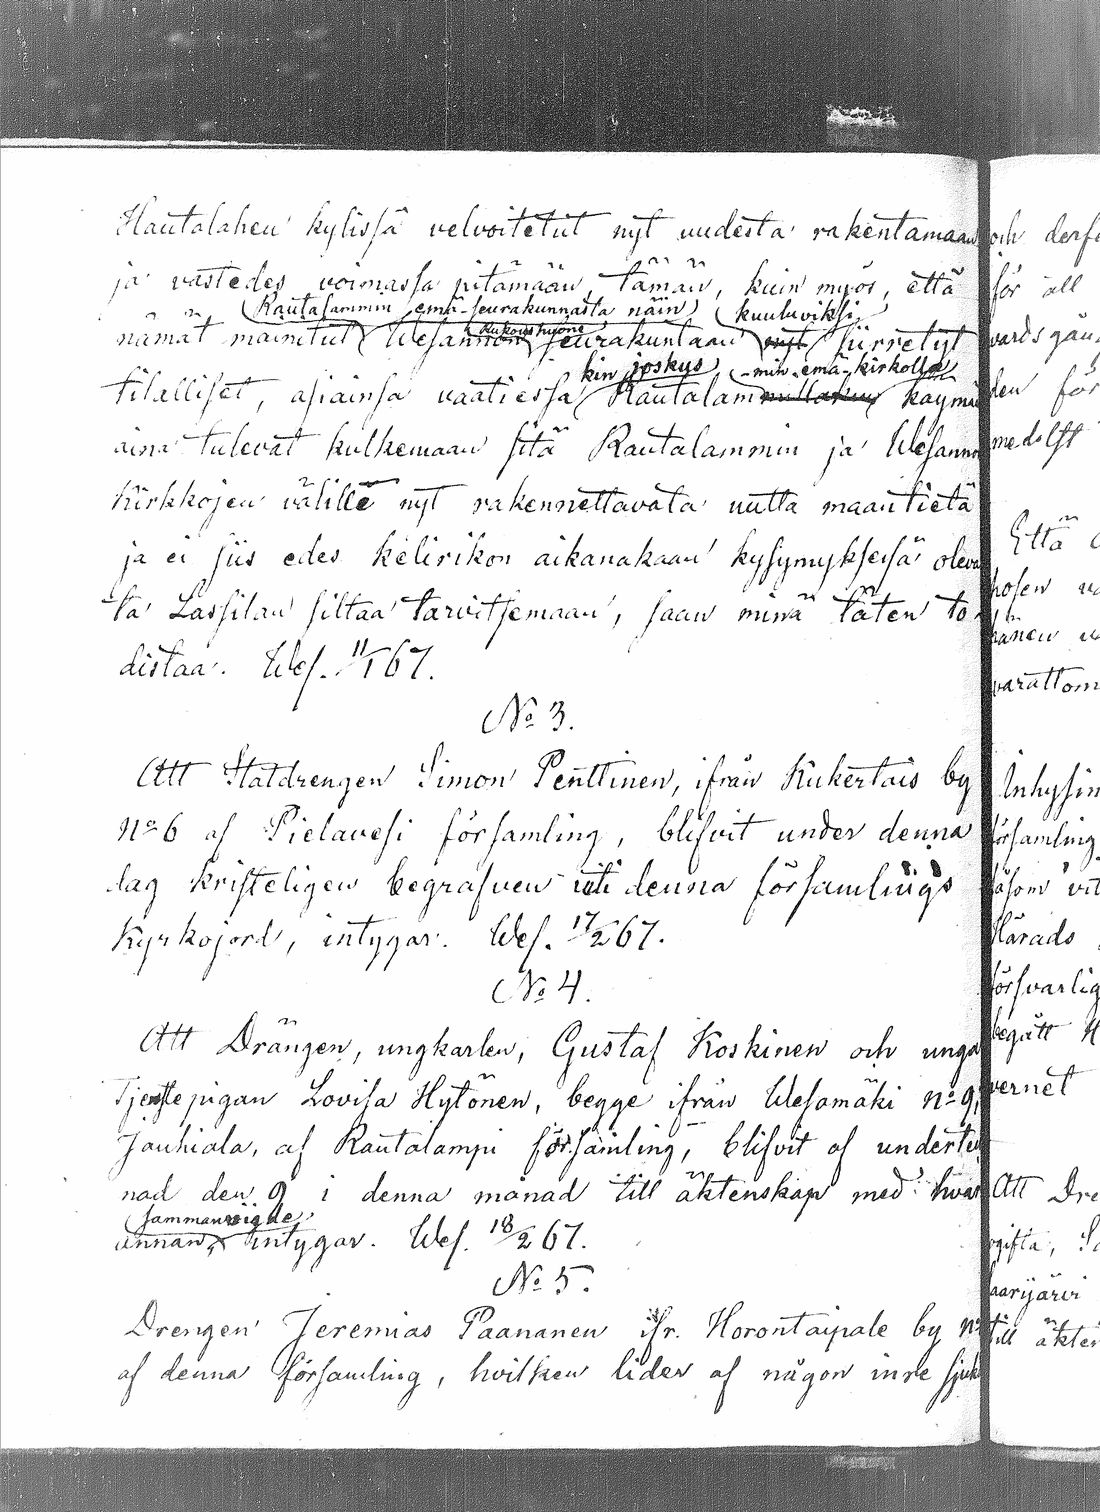 Hautalahen kylissä velvoitetut nyt uudesta rakentamaan
ja vastedes voimassa pitämään tämän, kuin myös, että
Rautalammin emä-seurakunnasta näin kuuluviksi
nämät mainitut Wesannon seurakuntaan nyt siirretyt
kukoushuone
kin joskus min emä-kirkolla
tilalliset, asiainsa vaatiessa Rautalam käymään
aina tulevat kulkemaan sitä Rautalammin ja Wesannon
Kirkkojen välille nyt rakennettavata uutta maantietä
ja ei siis edes kelirikon aikanakaan kysymyksessä oleva
ta Lassilan siltaa tarvitsemaan, saan minä täten to
distaa. Wes. 11/1 67.
No 3.
Att Statdrengen Simon Penttinen, ifrån Kukertais by
No 6 af Pielavesi församling, blifvit under denna
dag kristeligen begrafven uti denna församlings
Kyrkojord, intygar. Wes. 17/2 67.
No 4.
Att Drängen, ungkarlen, Gustaf Koskinen och unga
Tjenstepigan Lovisa Hytönen, begge ifrån Wesamäki no 9,
Jauhiala, af Rautalampi församling, blifvit af underteck
nad den 9 i denna månad till äktenskap med hvar
sammanvigde
annan, intygar. Wes. 18/2 67.
No 5.
Drengen Jeremias Paananen ifr. Horontaipale by no
af denna församling, hvilken lider af någon inre sjuk
och derf
för all
vards
den för
medelst
Että
hosen
hänen
varattom
Inhysin
församling
såsom vit
Härads
försvarlig
begått
vernet
Att Dre
ogifta,
aarijärvi
till äkten